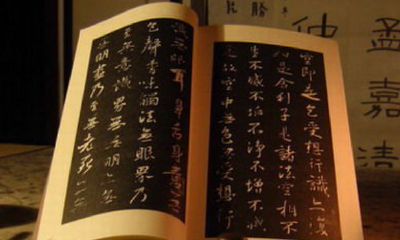 孟嘉
仲
空即是色受想行識亦復
如是舍利子是諸法空相不
生不滅不垢不淨不增不減
是故空中無色無受想行
識無眼耳鼻舌身意無
色聲香味觸法無眼界乃
至無意識界無無明亦
無無明盡乃至無老死亦